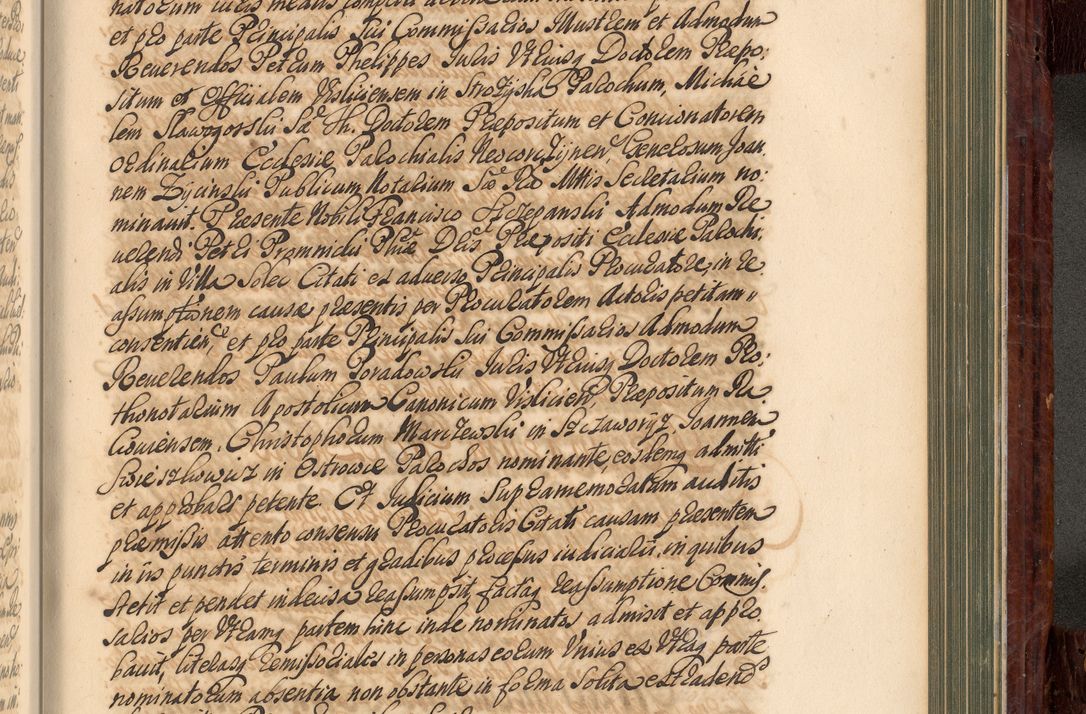 et pro parte Principalis Sui Commissarios Illustrem et Admodum
Reverendos Petrum Phelippes Iuris Vtriusq Doctorem Præpo:
situm et Officialem Visliciensem in Strożyska Parochum, Michae
lem Sławogorski Sæ Th. Doctorem Præpositum et Concionatorem
Ordinarium Ecclesiæ Parochialis Neocorczynen, Generosum Joan
nem Życinski Publicum Notarium Sæ Ræ Mttis Secretarium no:
minavit. Præsente Nobili Francisco Szczepanski Admodum Re
verendi Petri Præpositi Ecclesiæ Parochi
alis in Villa Solec Citati ex adverso Principalis Procuratore, in re
assumptionem causæ præsentis per Procuratorem Actoris petitam
consentien, et pro parte Principalis Sui Commissarios Admodum
Reverendos Paulum Poradowski Iuris Vtriusq Doctorem Pro:
thonotarium Apostolicum Canonicum Vislicien Præpositum Ra
coviensem, Christophorum Marczewski in Szczaworyz, Joannem
in Ostrowce Parochos nominante, eosdemq admitti
et approbari petente. Et Iudicium Supramemoratum auditis
præmissis attento consensu Procuratoris Citati causam præsentem
in iis punctis terminis et gradibus processus iudiciarii, in quibus
stetit et pendet indecisa reassumpsit, factaq reassumptione Commis
sarios per Vtramq partem hinc inde nominatos admisit et appro
bavit, literasq Remissoriales in personas eorum Vnius ex Vtraq parte
nominatorum absentia non obstante in forma solita extradend